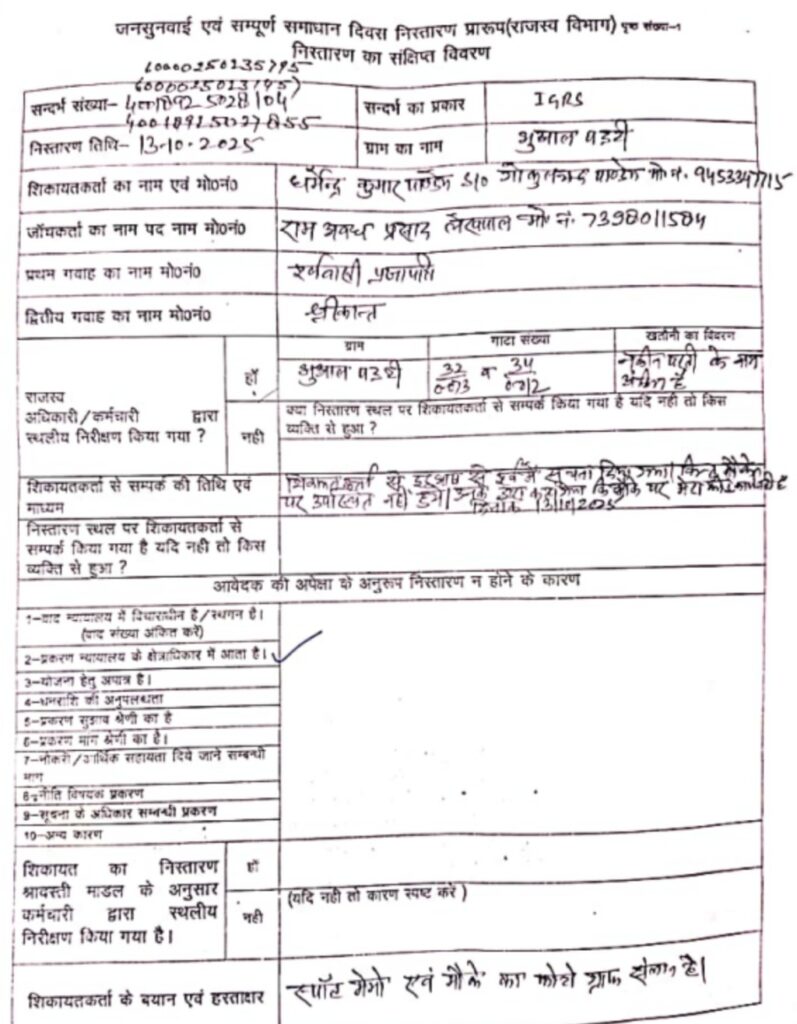 जनसुनवाई एवं सम्पूर्ण समाधान दिवस निस्तारण प्रारूप(राजस्व विभाग) पृष्ठ संख्या-1
निस्तारण का संक्षिप्त विवरण
60000250235795
सन्दर्भ संख्या- 40018925028104
40018925027855
सन्दर्भ का प्रकार
IGRS
निस्तारण तिथि- 13-10-2025
ग्राम का नाम
भुआल पट्टी
शिकायतकर्ता का नाम एवं मो0नं0
धर्मेन्द्र कुमार पाण्डेय S/O पाण्डेय मो.नं. 9453347715
जॉचकर्ता का नाम पद नाम मो0नं0
राम अवध प्रसाद लेखपाल मो. नं. 7398011584
प्रथम गवाह का नाम मो0नं0
प्रजापति
द्वितीय गवाह का नाम मो0नं0
श्रीकान्त
राजस्व
अधिकारी/कर्मचारी द्वारा
स्थलीय निरीक्षण किया गया ?
हॉ
ग्राम
गाटा संख्या
खतौनी का विवरण
भुआल पट्टी
32 व 34
नवीन परती के नाम
अंकित है
नही
क्या निस्तारण स्थल पर शिकायतकर्ता से सम्पर्क किया गया है यदि नही तो किस
व्यक्ति से हुआ ?
शिकायतकर्ता से सम्पर्क की तिथि एवं
माध्यम
शिकायतकर्ता को दूरभाष से पूर्व में सूचना दिया गया। किन्तु मौके
पर उपस्थित नहीं हुये। उनके द्वारा कहा गया कि मौके पर मेरा कोई
दिनांक 13/10/2025
निस्तारण स्थल पर शिकायतकर्ता से
सम्पर्क किया गया है यदि नही तो किस
व्यक्ति से हुआ ?
आवेदक की अपेक्षा के अनुरूप निस्तारण न होने के कारण
1-वाद न्यायालय में विचाराधीन है/स्थगन है।
(वाद संख्या अंकित करें)
2-प्रकरण न्यायालय के क्षेत्राधिकार में आता है।
3-योजना हेतु अपात्र है।
4-धनराशि की अनुपलब्धता
5-प्रकरण सुझाव श्रेणी का है
6-प्रकरण मांग श्रेणी का है।
7-नौकरी/आर्थिक सहायता दिये जाने सम्बन्धी
मांग
8-नीति विषयक प्रकरण
9-सूचना के अधिकार सम्बन्धी प्रकरण
10-अन्य कारण
शिकायत का निस्तारण
श्रावस्ती माडल के अनुसार
कर्मचारी द्वारा स्थलीय
निरीक्षण किया गया है।
हॉ
नही
(यदि नही तो कारण स्पष्ट करें )
शिकायतकर्ता के बयान एवं हस्ताक्षर
स्पॉट मेमो एवं मौके का फोटो ग्राफ संलग्न है।